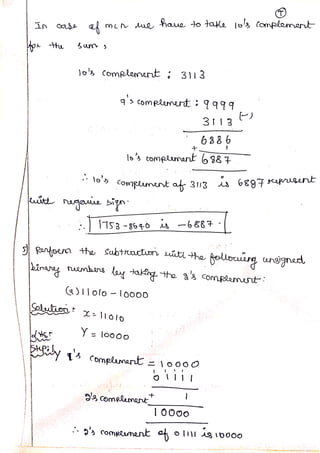 7
In case of m<n we have to take 10's complement
for the sum;
10's complement : 3113
9's complement : 9999
3113 (-)
6886
+ 1
10's complement 6887
∴ 10's complement of 3113 is 6887 represent
with negative sign.
∴ 1753-8640 is -6887.
5) Perform the subtraction with the following unsigned
binary numbers by taking the 2's complement:
(a) 11010 - 10000
Solution: x = 11010
Y = 10000
1's complement = 10000
01111
2's complement + 1
10000
∴ 2's complement of 01111 is 10000